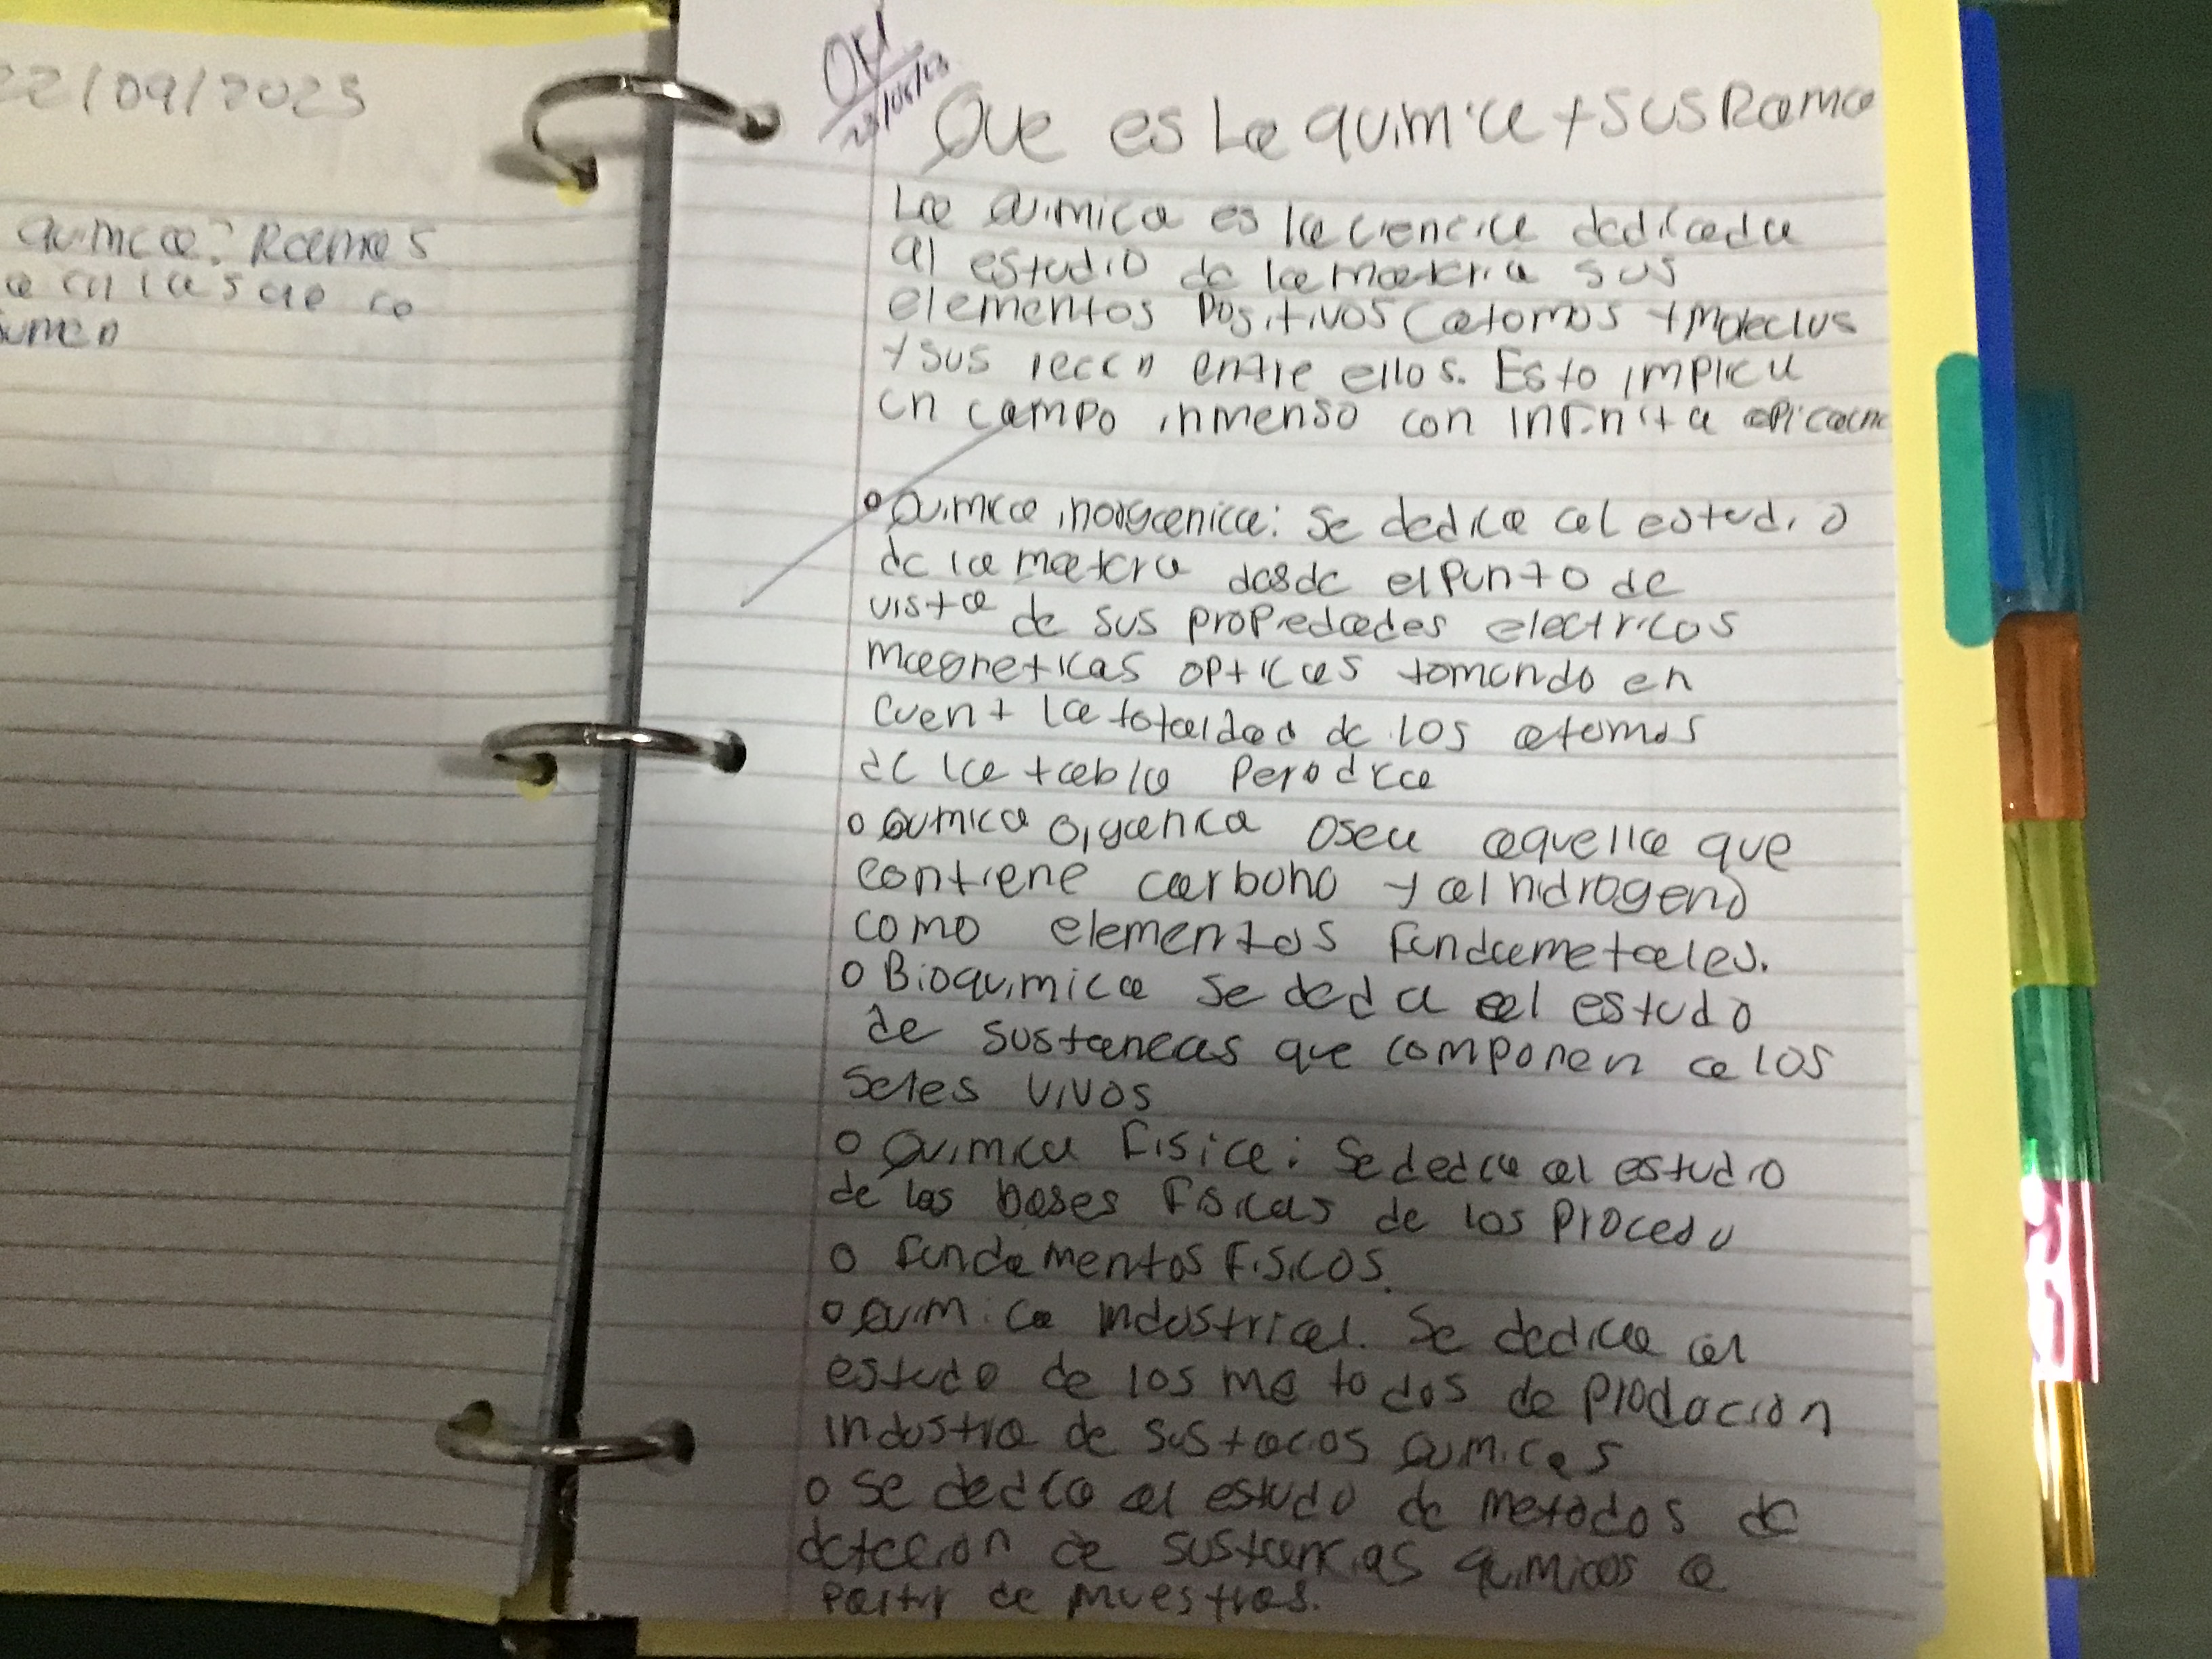 22/09/2023
quimica? Ramas
sumen
OK
Que es La quimica y sus Rama
La quimica es la ciencia dedicada
al estudio de la materia sus
elementos Positivos (atomos y Moleclus
y sus reccn entre ellos. Esto implica
un campo inmenso con infinita aplicacine
• Quimica inorganica: Se dedica al estudio
de la matera desde el Punto de
vista de sus propiedades electricos
magneticas opticas tomando en
cuent la totaldad de los atomos
de la tabla Perodica
o Quimica organica osea aquella que
contiene carbono y al hidrogeno
como elementos fundametales.
o Bioquimica se deda al estudo
de sustaneas que componen a los
seres vivos
o Quimica fisica: Se dedica al estudio
de las bases fisicas de los Proceso
o fundamentos fisicos.
o Quimica industrial. Se dedica al
estudo de los metodos de Produccion
industria de sustacos Quimicas
o se dedica al estudo de metodos de
deteccion de sustancias quimicos a
partir de muestras.